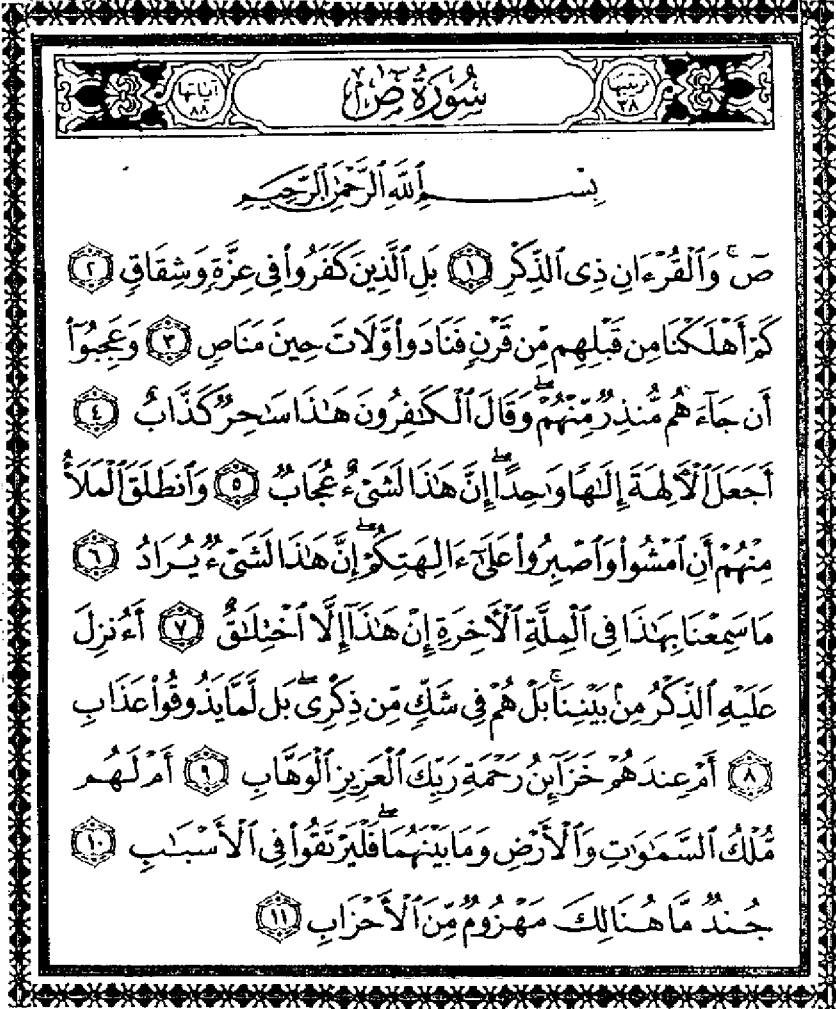 ترتيبها ٣٨ سُورَةُ صٓ آياتها ٨٨
بِسْمِ ٱللَّهِ ٱلرَّحْمَٰنِ ٱلرَّحِيمِ
صٓۚ وَٱلْقُرْءَانِ ذِى ٱلذِّكْرِ ١ بَلِ ٱلَّذِينَ كَفَرُوا۟ فِى عِزَّةٍ وَشِقَاقٍ ٢
كَمْ أَهْلَكْنَا مِن قَبْلِهِم مِّن قَرْنٍ فَنَادَوا۟ وَّلَاتَ حِينَ مَنَاصٍ ٣ وَعَجِبُوٓا۟
أَن جَآءَهُم مُّنذِرٌ مِّنْهُمْۖ وَقَالَ ٱلْكَٰفِرُونَ هَٰذَا سَٰحِرٌ كَذَّابٌ ٤
أَجَعَلَ ٱلْأَلِهَةَ إِلَٰهًا وَٰحِدًاۖ إِنَّ هَٰذَا لَشَىْءٌ عُجَابٌ ٥ وَٱنطَلَقَ ٱلْمَلَأُ
مِنْهُمْ أَنِ ٱمْشُوا۟ وَٱصْبِرُوا۟ عَلَىٰٓ ءَالِهَتِكُمْۖ إِنَّ هَٰذَا لَشَىْءٌ يُرَادُ ٦
مَا سَمِعْنَا بِهَٰذَا فِى ٱلْمِلَّةِ ٱلْأَخِرَةِ إِنْ هَٰذَآ إِلَّا ٱخْتِلَٰقٌ ٧ أَءُنزِلَ
عَلَيْهِ ٱلذِّكْرُ مِنۢ بَيْنِنَاۚ بَلْ هُمْ فِى شَكٍّ مِّن ذِكْرِىۖ بَل لَّمَّا يَذُوقُوا۟ عَذَابِ
٨ أَمْ عِندَهُمْ خَزَآئِنُ رَحْمَةِ رَبِّكَ ٱلْعَزِيزِ ٱلْوَهَّابِ ٩ أَمْ لَهُم
مُّلْكُ ٱلسَّمَٰوَٰتِ وَٱلْأَرْضِ وَمَا بَيْنَهُمَاۖ فَلْيَرْتَقُوا۟ فِى ٱلْأَسْبَٰبِ ١٠
جُندٌ مَّا هُنَالِكَ مَهْزُومٌ مِّنَ ٱلْأَحْزَابِ ١١